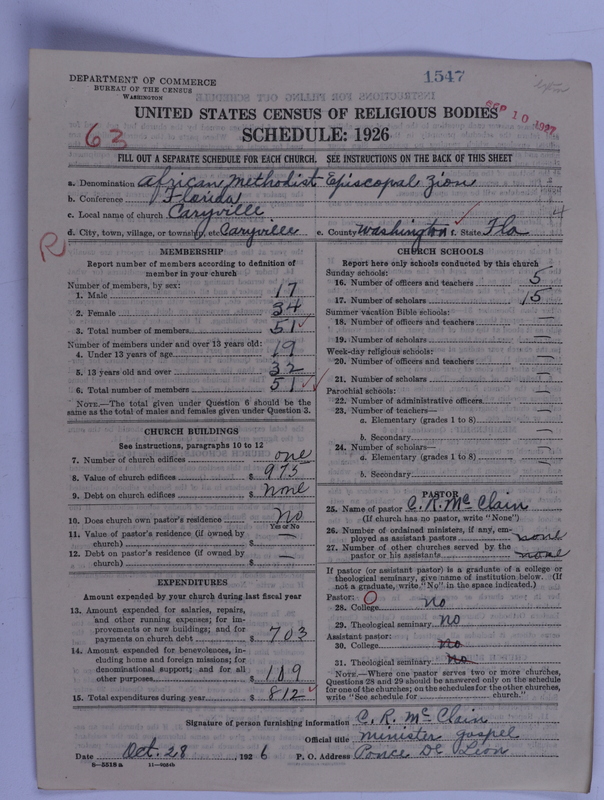 DEPARTMENT OF COMMERCE
BUREAU OF THE CENSUS
WASHINGTON
1547
SEP 10 1927
63
UNITED STATES CENSUS OF RELIGIOUS BODIES
SCHEDULE: 1926
FILL OUT A SEPARATE SCHEDULE FOR EACH CHURCH. SEE INSTRUCTIONS ON THE BACK OF THIS SHEET
a. Denomination African Methodist Episcopal Zion
b. Conference Florida
c. Local name of church Caryville
d. City, town, village, or township, etc. Caryville e. County Washington f. State Fla
R
MEMBERSHIP
Report number of members according to definition of
member in your church
Number of members, by sex:
1. Male 17
2. Female 34
3. Total number of members 51
Number of members under and over 13 years old:
4. Under 13 years of age 19
5. 13 years old and over 32
6. Total number of members 51
NOTE.—The total given under Question 6 should be the
same as the total of males and females given under Question 3.
CHURCH BUILDINGS
See instructions, paragraphs 10 to 12
7. Number of church edifices one
8. Value of church edifices $ 975
9. Debt on church edifices $ none
10. Does church own pastor's residence No
Yes or No
11. Value of pastor's residence (if owned by
church) $ —
12. Debt on pastor's residence (if owned by
church) $ —
EXPENDITURES
Amount expended by your church during last fiscal year
13. Amount expended for salaries, repairs,
and other running expenses; for im-
provements or new buildings; and for
payments on church debt $ 703
14. Amount expended for benevolences, in-
cluding home and foreign missions; for
denominational support; and for all
other purposes $ 109
15. Total expenditures during year $ 812
CHURCH SCHOOLS
Report here only schools conducted by this church
Sunday schools:
16. Number of officers and teachers 5
17. Number of scholars 15
Summer vacation Bible schools:
18. Number of officers and teachers —
19. Number of scholars —
Week-day religious schools:
20. Number of officers and teachers —
21. Number of scholars —
Parochial schools:
22. Number of administrative officers —
23. Number of teachers—
a. Elementary (grades 1 to 8) —
b. Secondary —
24. Number of scholars—
a. Elementary (grades 1 to 8) —
b. Secondary —
PASTOR
25. Name of pastor C. R. McClain
(If church has no pastor, write "None")
26. Number of ordained ministers, if any, em-
ployed as assistant pastors none
27. Number of other churches served by the
pastor or his assistants none
If pastor (or assistant pastor) is a graduate of a college or
theological seminary, give name of institution below. (If
not a graduate, write "No" in the space indicated.)
Pastor:
28. College No
29. Theological seminary No
Assistant pastor:
30. College No
31. Theological seminary No
NOTE.—Where one pastor serves two or more churches,
Questions 28 and 29 should be answered only on the schedule
for one of the churches; on the schedules for the other churches,
write "See schedule for church."
Signature of person furnishing information C. R. McClain
Official title Minister Gospel
Date Oct. 28, 1926 P. O. Address Ponce De Leon
8—5518a 11—4664b